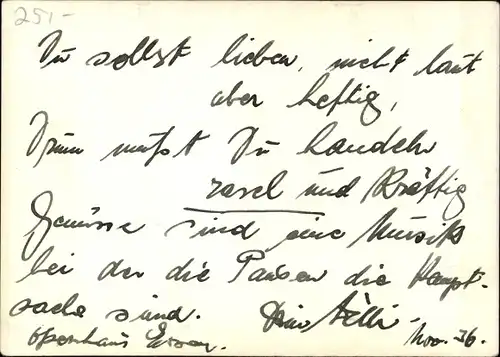 251-
Du sollst lieben, nicht laut
aber heftig,
Drum mußt Du handeln
rasch und kräftig
Genüsse sind eine Musik
bei der die Pausen die Haupt-
sache sind. Dein Willi-
Opernhaus Essen. Nov. 36.